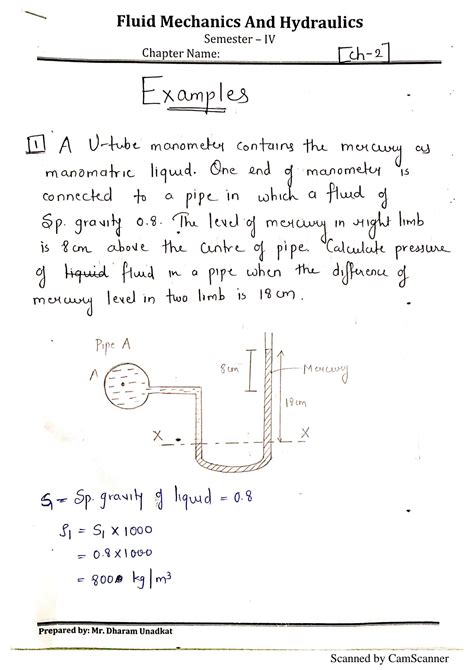 Fluid Mechanics And Hydraulics
Semester – IV
Chapter Name:
[ch-2]
Examples
1 A U-tube manometer contains the mercury as
manomatric liquid. One end of manometer is
connected to a pipe in which a fluid of
Sp. gravity 0.8. The level of mercury in right limb
is 8cm above the centre of pipe. Calculate pressure
of liquid fluid in a pipe when the difference of
mercury level in two limb is 18cm.
Pipe A
A
8cm
Mercury
18cm
X
X
S1 = Sp. gravity of liquid = 0.8
ρ1 = S1 × 1000
= 0.8×1000
= 800 kg/m³
Prepared by: Mr. Dharam Unadkat
Scanned by CamScanner